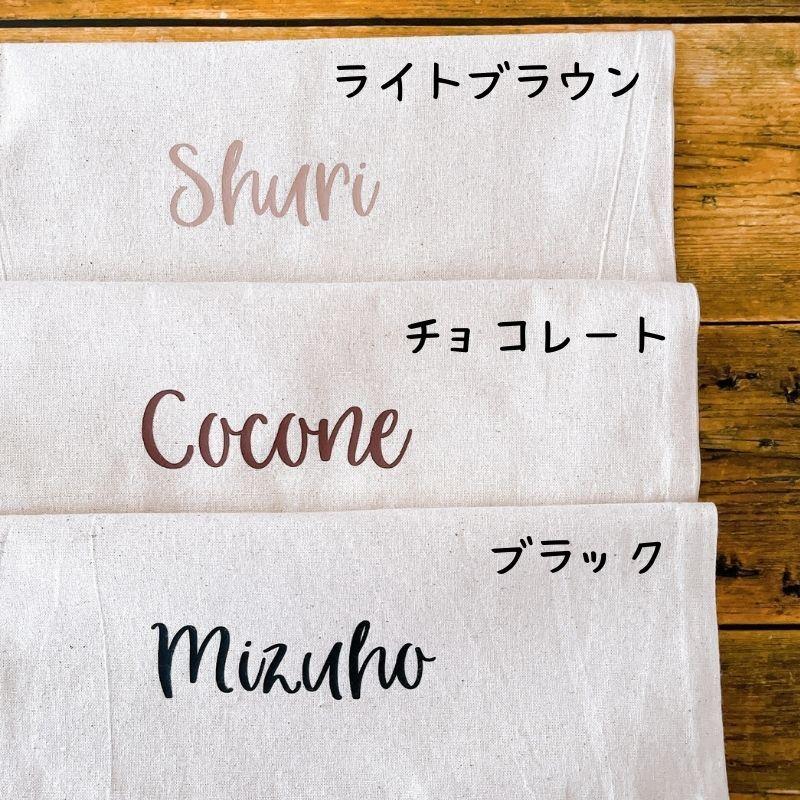 ライトブラウン
Shuri
チョコレート
Cocone
ブラック
Mizuho